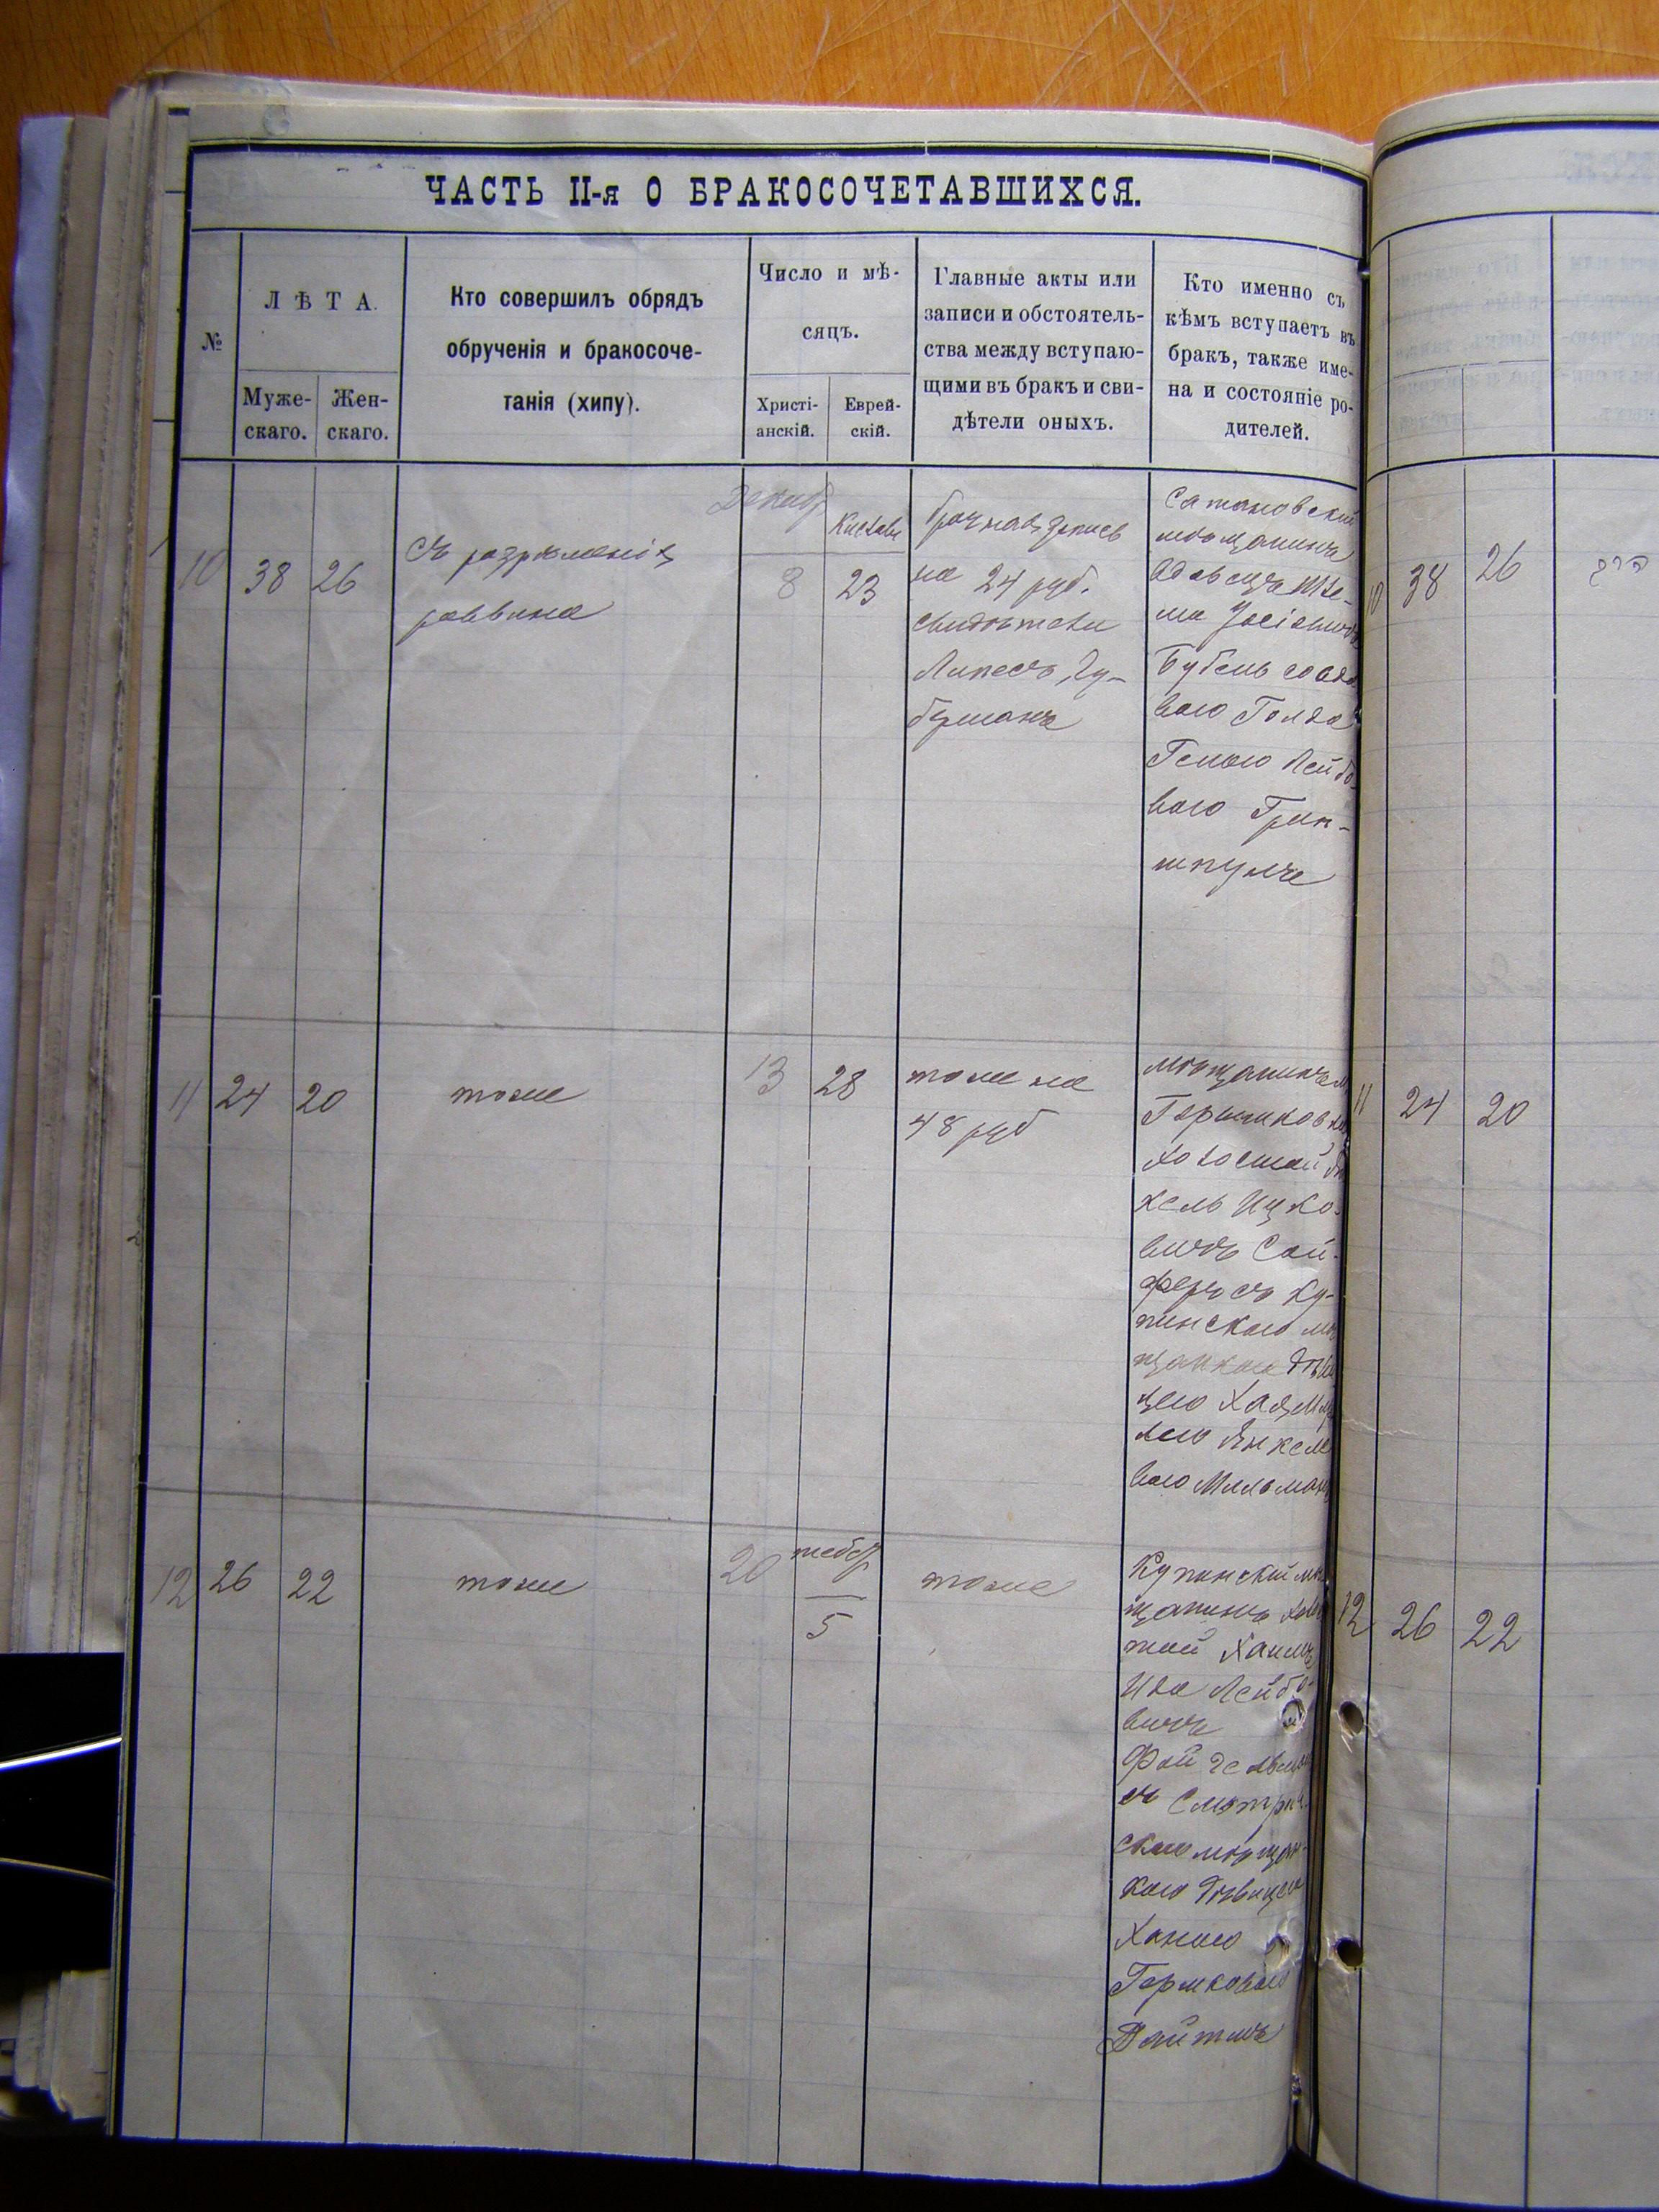 ЧАСТЬ II-я О БРАКОСОЧЕТАВШИХСЯ.
№
ЛѢТА.
Муже-
скаго.
Жен-
скаго.
Кто совершилъ обрядъ
обрученія и бракосоче-
танія (хипу).
Число и мѣ-
сяцъ.
Христі-
анскій.
Еврей-
скій.
Главные акты или
записи и обстоятель-
ства между вступаю-
щими въ бракъ и сви-
дѣтели оныхъ.
Кто именно съ
кѣмъ вступаетъ въ
бракъ, также име-
на и состояніе ро-
дителей.
10
38
26
Съ разрѣшенія
раввина
Декабр
8
Кислевъ
23
брачная запись
на 24 руб.
свидѣтели
Липесъ, Гу-
берманъ
Сатановскій
мѣщанинъ
вдовецъ Шле-
ма Іосіовичъ
Бубель со вдо
вою Голда
Генею Лейбо-
вою Грин-
шпунъ
11
24
20
тоже
13
28
тоже на
48 руб
мѣщанинъ м
холостой
кель Ицко-
вичъ Сой-
феръ съ Ку-
пинскою мѣ
щанкою дѣви
цею Хая
лею Янкеле
вою Мильманъ
12
26
22
тоже
20
тебер
5
тоже
Купинскій мѣ
щанинъ холо
стой Хаимъ
Ида Лейбо-
вичъ
съ Смотрич
скою мѣщан-
кою дѣвицею
Ханою
Гершковою
10
38
26
11
24
20
12
26
22